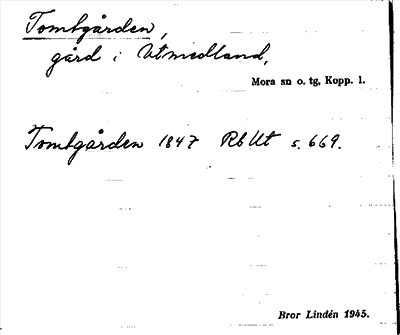 Tomtgården,
gård i Utmedland,
Mora sn o. tg, Kopp. l.
Tomtgården 1847 RbUt s. 669.
Bror Lindén 1945.